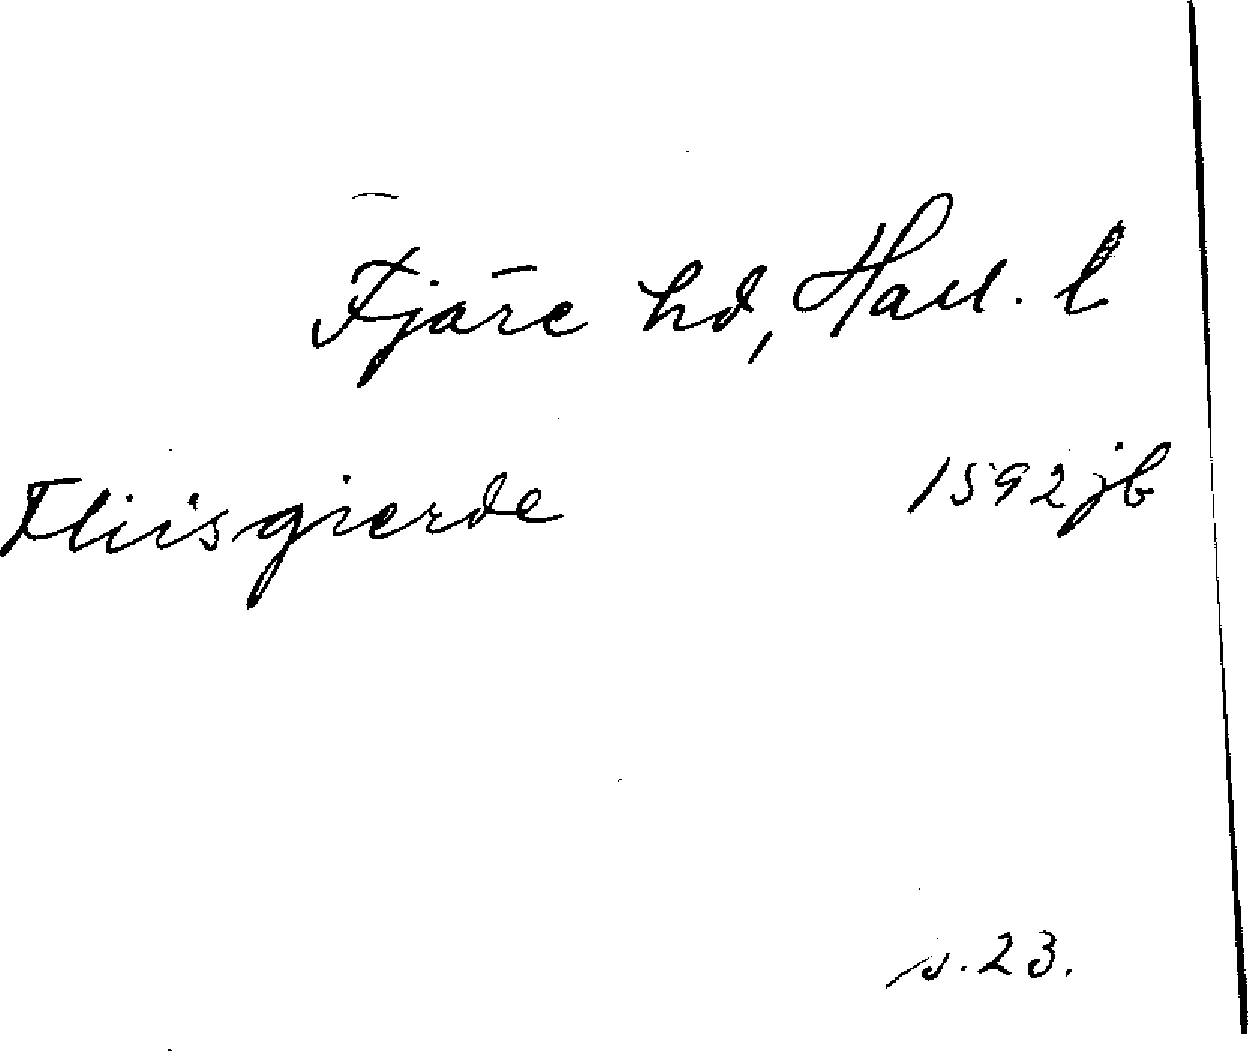 Fjäre hd, Hall. l
Fliisgierde 1592 jb
s. 23.